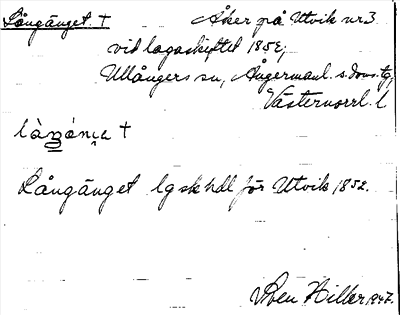 Långänget. † Åker på Utvik nr 3
vid lagaskiftet 1852;
Ullångers sn, Ångermanl. s. doms. tg,
Västernorrl. l
Långänget lgskhdl för Utvik 1852.
Sven Hiller 1947.